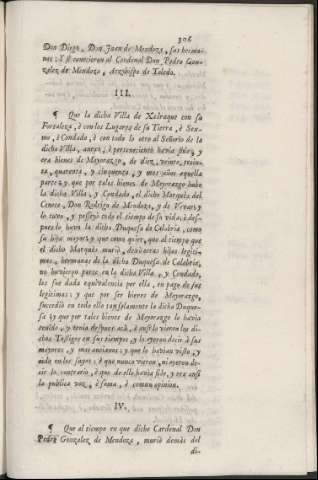 306
Don Diego, Don Juan de Mendoza, sus herma-
nos: Y si conocieron al Cardenal Don Pedro Gon-
zalez de Mendoza, Arzobispo de Toledo.
III.
¶ Que la dicha Villa de Xadraque con su
Fortaleza, è con los Lugares de su Tierra, è Sex-
mo, è Condado, è con todo lo otro al Señorio de la
dicha Villa, anexo, è perteneciente havia sido, y
era bienes de Mayorazgo, de diez, veinte, treinta,
quarenta, y cinquenta, y mas años à aquella
parte; y que por tales bienes de Mayorazgo huvo
la dicha Villa, y Condado, el dicho Marquès del
Cenete, Don Rodrigo de Mendoza, y de Vivar; y
lo tuvo, y posseyò todo el tiempo de su vida; è des-
pues lo huvo la dicha Duquesa de Calabria, como
su hija mayor; y que como quier, que al tiempo que
el dicho Marquès muriò, dexàra otras hijas legiti-
mas, hermanas de la dicha Duquesa de Calabria,
no huviesse parte en la dicha Villa, y Condado,
les fue dada equivalencia por ella, en pago de sus
legitimas; y que por ser bienes de Mayorazgo
sucediò en todo solamente la dicha Duque-
sa; y que por tales bienes de Mayorazgo lo havia
tenido, y tenia despues acà, è assi lo vieron los di-
chos Testigos en sus tiempos; y lo oyeron decir à sus
mayores, y mas ancianos; y que lo havian visto, y
oìdo estos sapos; è que nunca vieron, ni oyeron de-
cir lo contrario, è que de ello havia sido, y era assi
la publica voz, è fama, è comun opinion.
IV.
¶ Que al tiempo en que dicho Cardenal Don
Pedro Gonzalez de Mendoza, muriò demàs del
di-